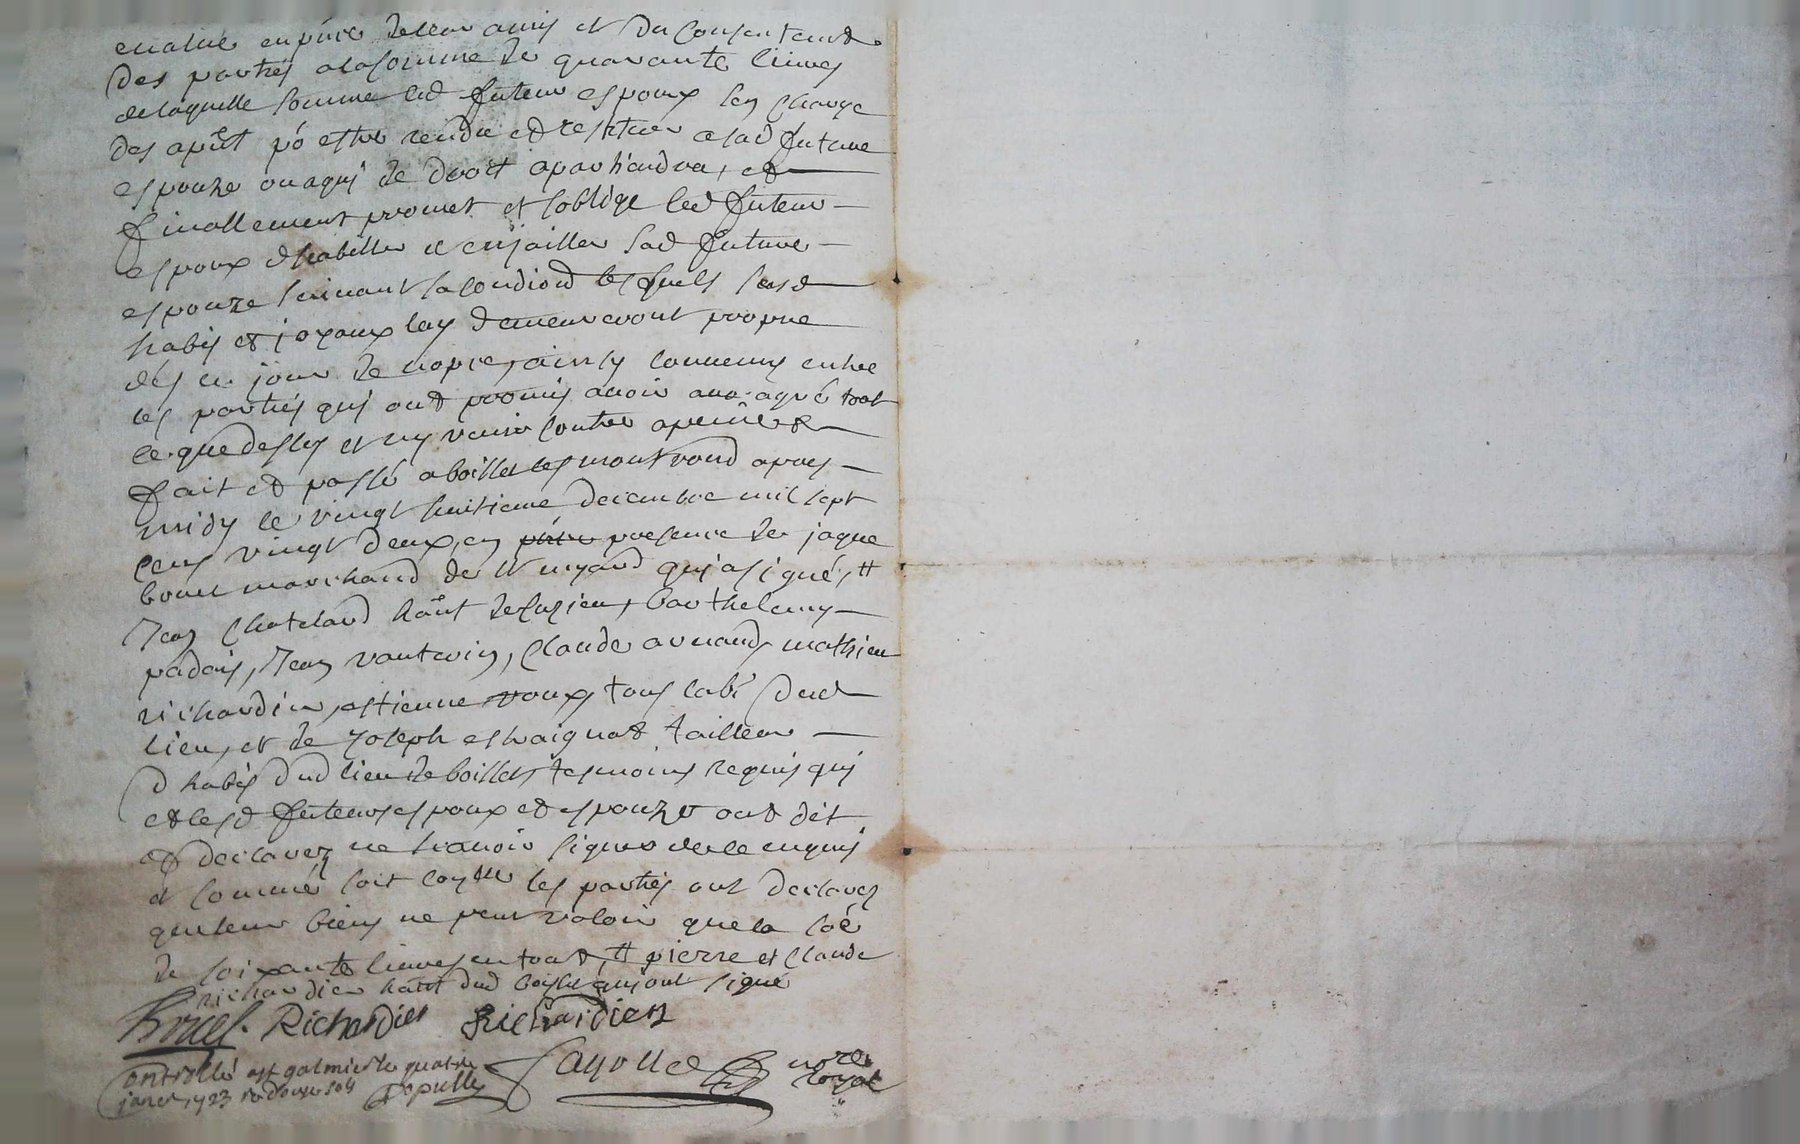 de leur amis et du consentemt
des parties a la somme de quarante livres
de laquelle somme led futur espoux sen charge
des apnt po estre rendue et restituer a lad future
espouze ou a qui de droit apartiendra, et
finallement promet et soblige led futur
espoux dhabiller et enjoailler sad future
espouze suivant sa condiond lesquels susd
habis et joyaux luy demeureront propre
dés ce jour de nopce, ainsy convenus entre
les parties qui ont promis avoir agreé tout
ce que dessus et ny venir contre a peine &
fait et passé a boisset les montrond apres
midy le vingt huitieme decembre mil sept
cens vingt deux, en presence de jaque
marchand de qui a signé, #
Jean Chatelard hânt barthelemy
Jean vantrin, Claude arnaud, mathieu
richardier, estienne roux, tous labr dud
lieu, et de Joseph tailleur
dhabis dud lieu de boisset, tesmoins requis qui
et lesd futurs espoux et espouze ont dit
et declarez ne scavoir signer de ce enquis
et sommé soit les parties ont declarez
que leur biens ne peut valoir que la soe
de soixante livres en tout, # pierre et Claude
richardier hânt dud boisset qui ont signé
Richardier Richardier
Controllé a st galmier le quatre
janer 1723 r douze sols
nore
royal